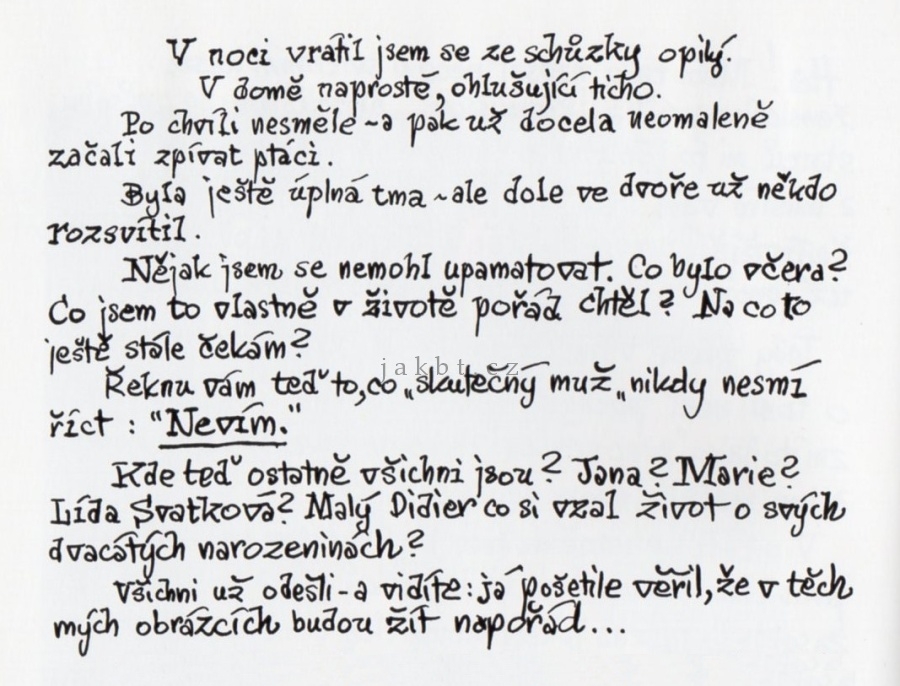 V noci vrátil jsem se ze schůzky opilý.
V domě naprosté, ohlušující ticho.
Po chvíli nesměle ~ a pak už docela neomaleně
začali zpívat ptáci.
Byla ještě úplná tma ~ ale dole ve dvoře už někdo
rozsvítil.
Nějak jsem se nemohl upamatovat. Co bylo včera?
Co jsem to vlastně v životě pořád chtěl? Na co to
ještě stále čekám?
jakbt.cz
Řeknu vám teď to, co „skutečný muž„ nikdy nesmí
říct : "Nevím."
Kde teď ostatně všichni jsou? Jana? Marie?
Lída Svatková? Malý Didier co si vzal život o svých
dvacátých narozeninách?
Všichni už odešli - a vidíte: já pošetile věřil, že v těch
mých obrázcích budou žít napořád...